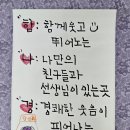 함: 함께웃고
뛰어노는
나: 나만의
친구들과
선생님이 있는곳
경: 경쾌한 웃음이
피어나는